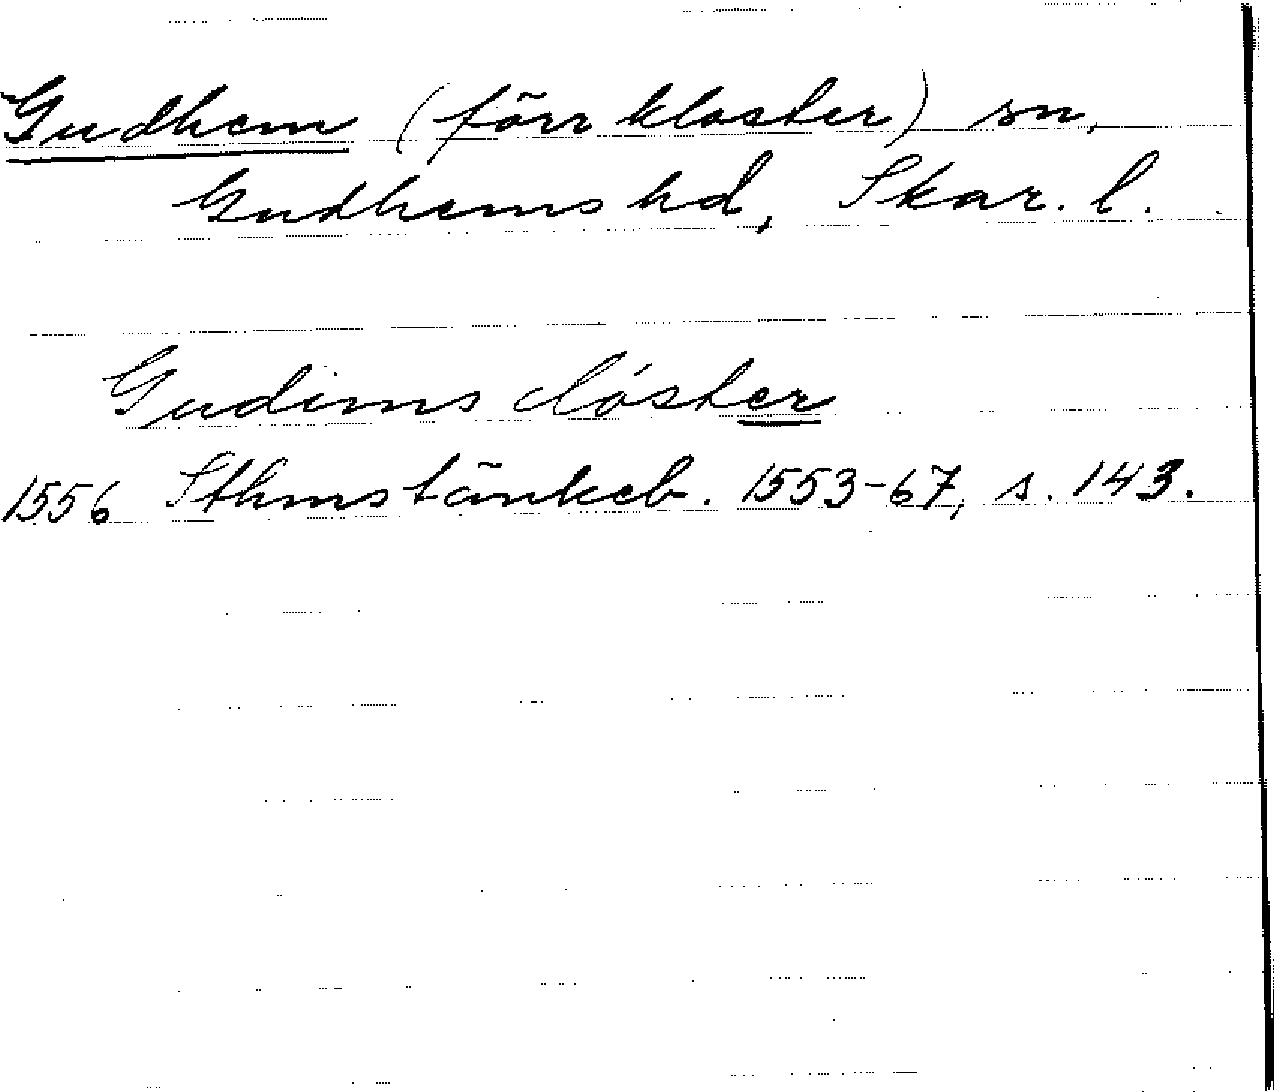 Gudhem (förr kloster) sn,
Gudhems hd, Skar. l.
Gudims clóster
1556 Sthms tänkeb. 1553-67, s. 143.